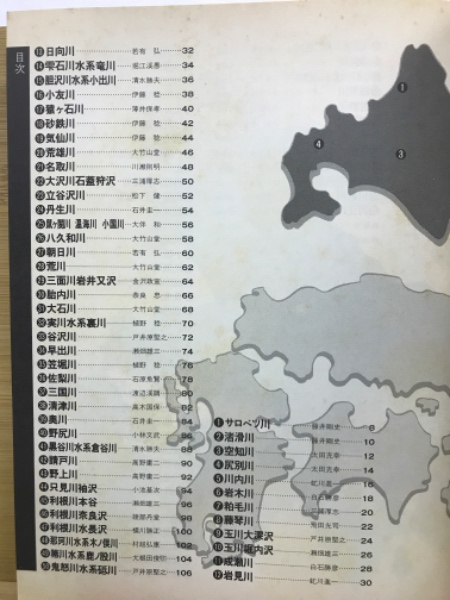 目次
⑬日向川 若有 弘 32
⑭雫石川水系竜川 堀江渓愚 34
⑮胆沢川水系小出川 清水勝夫 36
⑯小友川 伊藤 稔 38
⑰猿ヶ石川 40
⑱砂鉄川 伊藤 稔 42
⑲気仙川 伊藤 稔 44
⑳荒雄川 大竹山堂 46
㉑名取川 川瀬則明 48
㉒大沢川石蓋狩沢 三浦厚志 50
㉓立谷沢川 松下 健 52
㉔丹生川 石井圭一 54
㉕ 温海川 小国川 大伴 和 56
㉖八久和川 大竹山堂 58
㉗朝日川 若有 弘 60
㉘荒川 大竹山堂 62
㉙三面川岩井又沢 金沢政富 64
㉚胎内川 奈良 恵 66
㉛大石川 大竹山堂 68
㉜実川水系裏川 植野 稔 70
㉝谷沢川 戸井原整之 72
㉞早出川 瀬畑雄三 74
㉟笠堀川 植野 稔 76
㊱佐梨川 78
㊲三国川 渡辺渓雄 80
㊳清津川 高木国保 82
㊴奥川 石井圭一 84
㊵野尻川 小林文武
㊶黒谷川水系倉谷川 清水勝夫 88
㊷請戸川 高野慶二 90
㊸野上川 高野慶二 92
㊹只見川袖沢 94
㊺利根川本谷 瀬畑雄三 96
㊻利根川奈良沢 98
㊼利根川水長沢 100
㊽那珂川水系木ノ俣川 102
㊾箒川水系鹿ノ股川 104
㊿鬼怒川水系砥川 戸井原整之 106
①サロベツ川 藤井剛史 8
②渚滑川 藤井剛史 10
③空知川 太田克幸 12
④尻別川 太田克幸 14
⑤川内川 虻川進一 16
⑥岩木川 白石勝彦 18
⑦粕毛川 三浦厚志 20
⑧藤琴川 22
⑨玉川大深沢 戸井原整之 24
⑩玉川堀内沢 瀬畑雄三 26
⑪成瀬川 白石勝彦 28
⑫岩見川 虻川進一 30
①
④
③